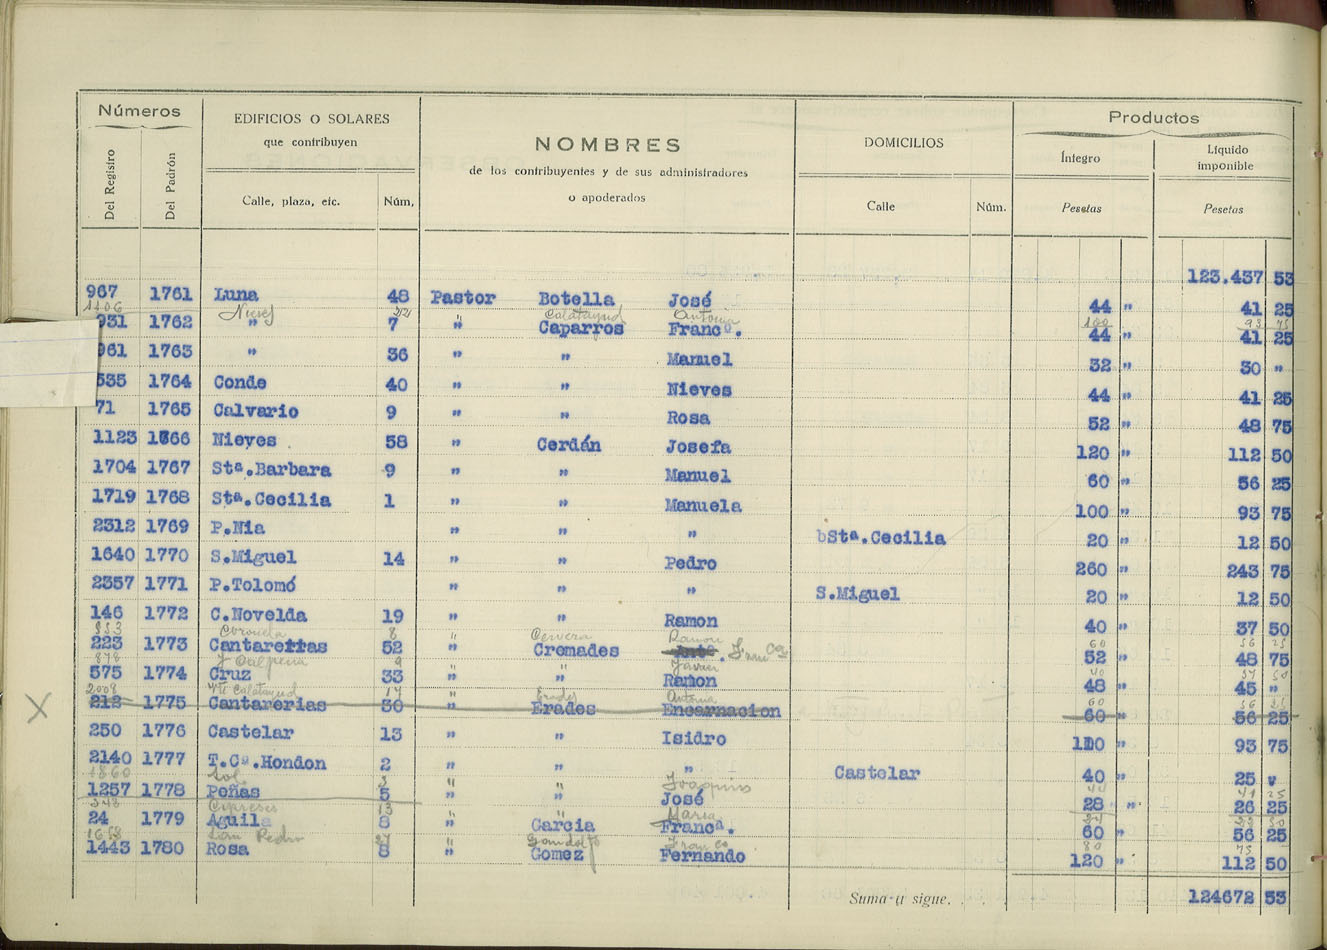 Números
EDIFICIOS O SOLARES
que contribuyen
NOMBRES
de los contribuyentes y de sus administradores
o apoderados
DOMICILIOS
Productos
Íntegro
Líquido imponible
Del Registro
Del Padrón
Calle, plaza, etc.
Núm.
Calle
Núm.
Pesetas
Pesetas
123.437 53
967 1761 Luna 48 Pastor Botella José 44 " 41 25
1106 Nieves 22 " Calatayud Antonia 100 93 75
931 1762 " 7 " Caparros Francº. 44 " 41 25
961 1763 " 36 " " Manuel 32 " 30 "
535 1764 Conde 40 " " Nieves 44 " 41 25
71 1765 Calvario 9 " " Rosa 52 " 48 75
1123 1766 Nieves 58 " Cerdán Josefa 120 " 112 50
1704 1767 Stª.Barbara 9 " " Manuel 60 " 56 25
1719 1768 Stª.Cecilia 1 " " Manuela 100 " 93 75
2312 1769 P.Nia " " " bStª.Cecilia 20 " 12 50
1640 1770 S.Miguel 14 " " Pedro 260 " 243 75
2357 1771 P.Tolomó " " " S.Miguel 20 " 12 50
146 1772 C.Novelda 19 " " Ramon 40 " 37 50
553 Coronela 8 " Cervera Ramon 60 56 25
223 1773 Cantarerias 52 " Cremades Antº. Francº 52 " 48 75
878 Galpena 9 " " Javier 40 37 50
575 1774 Cruz 33 " " Ramon 48 " 45 "
2008 Calatayud 17 " Erades Antonia 60 56 25
212 1775 Cantarerias 30 " Erades Encarnacion 60 " 56 25
250 1776 Castelar 13 " " Isidro 100 " 93 75
2140 1777 T.Cª.Hondon 2 " " " Castelar 40 " 25 "
1860 Sol 3 " " Joaquina 44 41 25
1257 1778 Peñas 5 " " José 28 " 26 25
348 Cipreses 13 " " Maria 24 22 50
24 1779 Aguila 8 " Garcia Francª. 60 " 56 25
1658 San Pedro 27 " Gandolfo Francº 80 75
1443 1780 Rosa 8 " Gomez Fernando 120 " 112 50
Suma y sigue. 124672 53